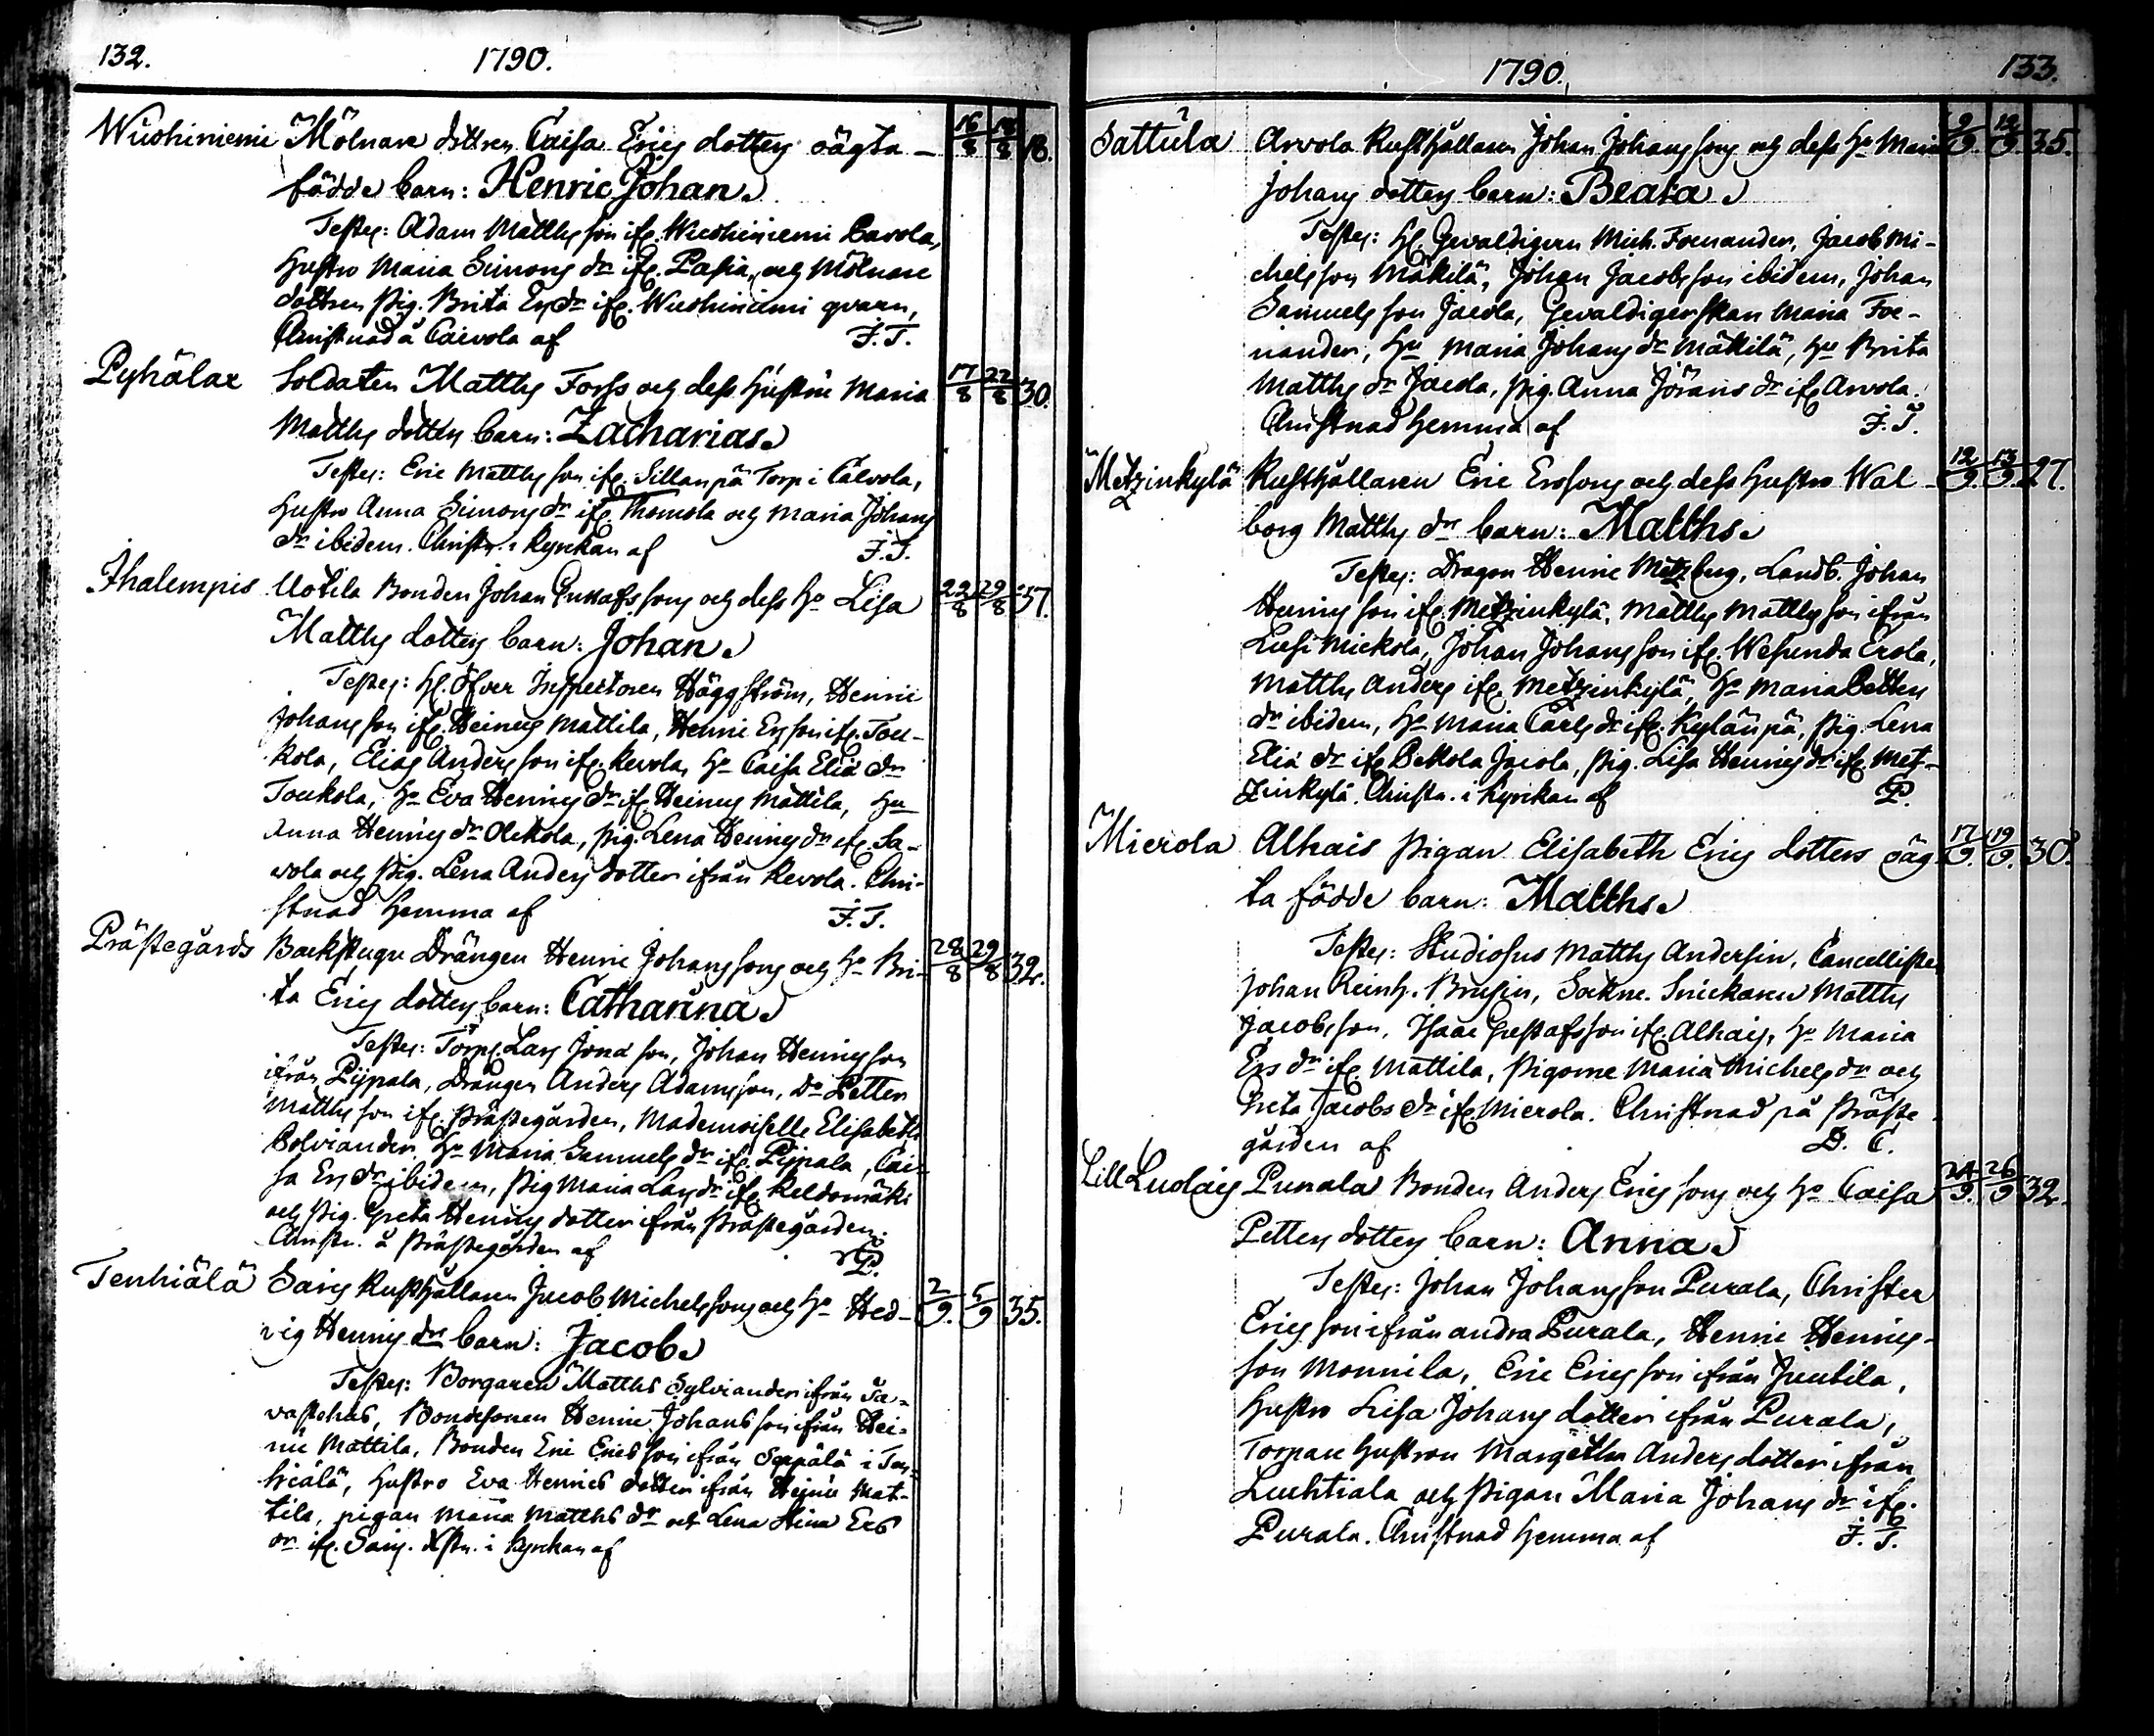 132. 1790.
Wuohiniemi Mölnare dottren Caisa Erics dotters oägta - 16/8 18/8 18.
födde barn: Henric Johan
Testes: Adam Matths son ifr. Wuohiniemi Pavola,
Hustro Maria Simons dr ifr. Pasia, och Mölnare
dottren pig. Brita Ers dr ifr. Wuohiniemi qvarn,
Christnad å Caivola af J. T.
Pyhälax Soldaten Matths Forss och dess Hustru Maria 17/8 22/8 30.
Matths dotters barn: Zacharias
Testes: Eric Matths son ifr. Sillanpä Torp i Calvola,
Hustro Anna Simons dr ifr. Thomola och Maria Johans
dr ibidem. Christn. i Kyrckan af J. T.
Ihalempis Uotila Bonden Johan Gustafs sons och dess Ho Lisa 22/8 29/8 37.
Matths dotters barn: Johan
Testes: Hl. Öfver Inspectoren Häggström, Henric
Johans son ifr. Heinus Mattila, Henric Ers son ifr. Tou-
kola, Elias Anders son ifr. Revola, Ho Caisa Eliæ dr
Toukola, Ho Eva Henrics dr ifr Heinus Mattila, Hu
Anna Henrics dr Ackola, pig. Lena Henrics dr ifr. Sa-
vola och pig. Lena Anders dotter ifrån Revola. Chri-
stnad hemma af J. T.
Prästegårds Backstugu Drängen Henric Johans sons och Ho Bri- 28/8 29/8 32.
ta Erics dotters barn: Catharina
Testes: Torp. Lars Jonæ son, Johan Henrics son
ifrån Pijpala, Drängen Anders Adams son, Do Petter
Matths son ifr. Prästegården, Mademoiselle Elisabeth
Polviander, Ho Maria Samuels dr ifr. Pijpala, Cai-
sa Ers dr ibidem, pig Maria Lars dr ifr. Keldomäki
och pig. Greta Henrics dotter ifrån Prästegården.
Christn. å Prästegården af P.
Tenhiälä Sairs Rusthållaren Jacob Michels sons och Ho Hed- 2/9. 5/9 35.
vig Henrics drs barn: Jacob
Testes: Borgaren Matths Sylviander ifrån Ta-
vastehus, Bondesonen Henric Johans son ifrån Hei-
nu Mattila, Bonden Eric Erics son ifrån Seppälä i Ten-
hiälä, Hustro Eva Henrics dotter ifrån Heinu Mat-
tila, pigan Maria Matths dr och Lena Stina Ers
dr ifr. Sairs. Xstn. i Kyrckan af
1790. 133.
Sattula Arvola Rusthållaren Johan Johans sons och dess Ho Maria 9/9. 12/9. 35.
Johans dotters barn: Beata
Testes: Hl. Gevaldigern Mich. Foenander, Jacob Mi-
chels son Mäkilä, Johan Jacobs son ibidem, Johan
Samuels son Jacola, Gevaldigerskan Maria Foe-
nander, Hu Maria Johans dr Mäkilä, Hu Brita
Matths dr Jacola, pig. Anna Jörans dr ifr Arvola.
Christnad hemma af J. T.
Metzinkylä Rusthållaren Eric Ers sons och dess Hustro Wal- 12/9. 13/9. 27.
borg Matths drs barn: Matths
Testes: Dragon Henric Metzberg, Landb. Johan
Henrics son ifr. Metzinkylä, Matths Matths son ifrån
Luhi Mickola, Johan Johans son ifr. Wesunda Erola,
Matths Anders ifr. Metzinkylä, Ho Maria Petters
dr ibidem, Ho Maria Carls dr ifr. Kylänpä, pig. Lena
Eliæ dr ifr Pekola Jacola, pig. Lisa Henrics dr ifr. Met-
zinkylä. Christn. i Kyrckan af P.
Mierola Alhais Pigan Elisabeth Erics dotters oäg- 17/9. 19/9. 30.
ta födde barn: Matths
Testes: Studiosus Matths Andersin, Cancellisten
Johan Reinh. Brusin, Sockne. Snickaren Matths
Jacobs son, Isaac Gustafs son ifr. Alhais, Ho Maria
Ers dr ifr. Mattila, Pigorne Maria Michels dr och
Greta Jacobs dr ifr Mierola. Christnad på Präste-
gården af D. C.
Lill Luolais Punala Bonden Anders Erics sons och Ho Caisa 24/9. 26/9 32.
Petters dotters barn: Anna
Testes: Johan Johans son Purala, Christer
Erics son ifrån andra Purala, Henric Henrics-
son Monnila, Eric Erics son ifrån Juutila,
Hustro Lisa Johans dotter ifrån Purala,
Torpare Hustron Margetha Anders dotter ifrån
Luchtiala och Pigan Maria Johans dr ifr.
Purala. Christnad hemma af J. T.